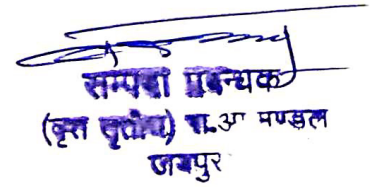 सम्पदा प्रबन्धक
(वृत्त तृतीय) रा. आ मण्डल
जयपुर